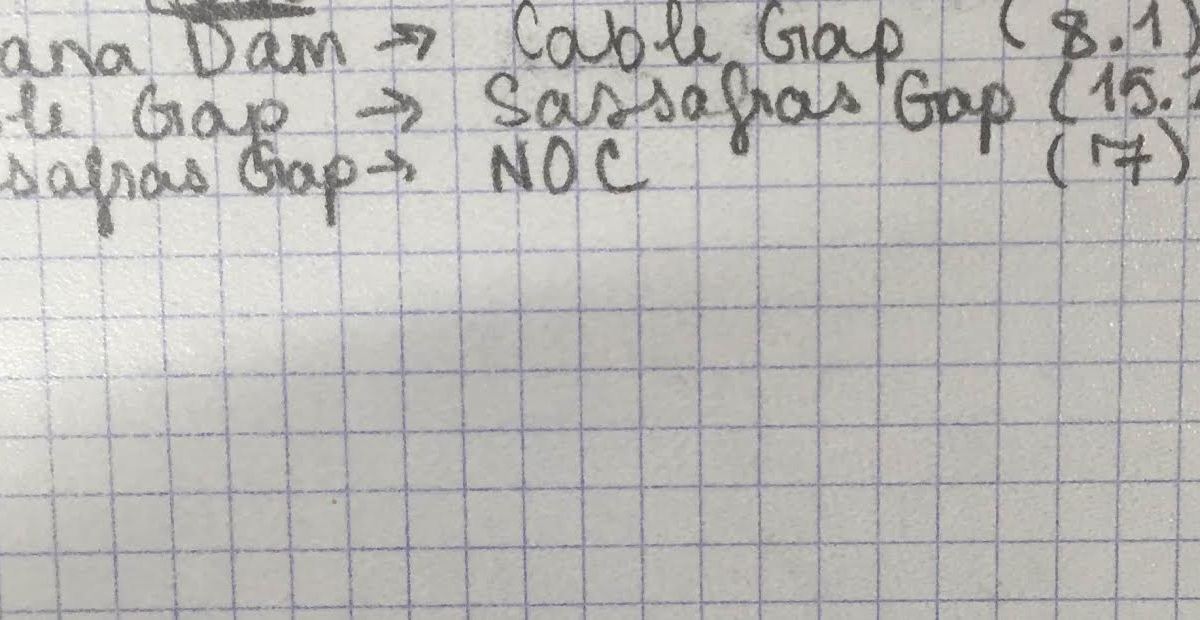 ana Dam → Cable Gap (8.1)
le Gap → Sassafras Gap (15.
safras Gap → NOC (7)